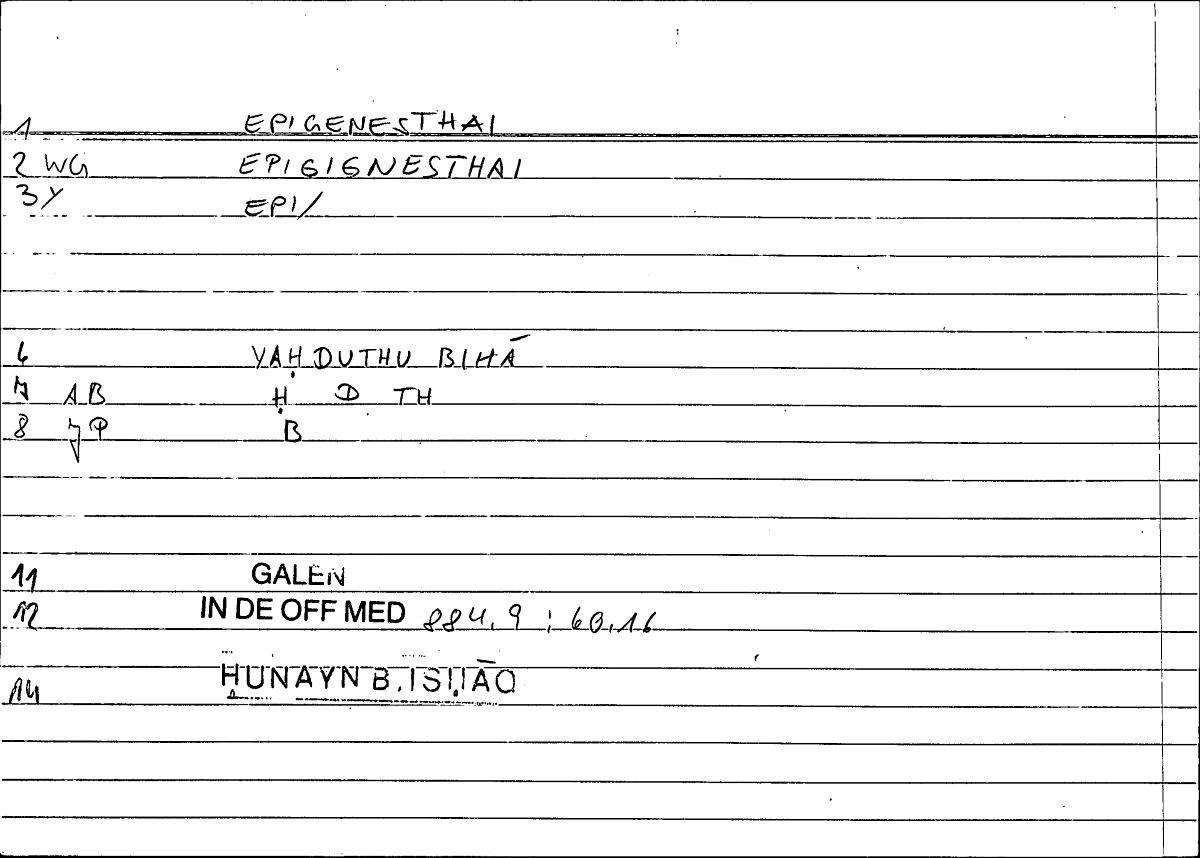 1 EPIGENESTHAI
2 WG EPIGIGNESTHAI
3 Y EPI/
6 YAḤDUTHU BIHĀ
7 AB Ḥ D TH
8 JP B
11 GALEN
12 IN DE OFF MED 884,9 ; 60,16
14 ḤUNAYN B. ISḤĀQ